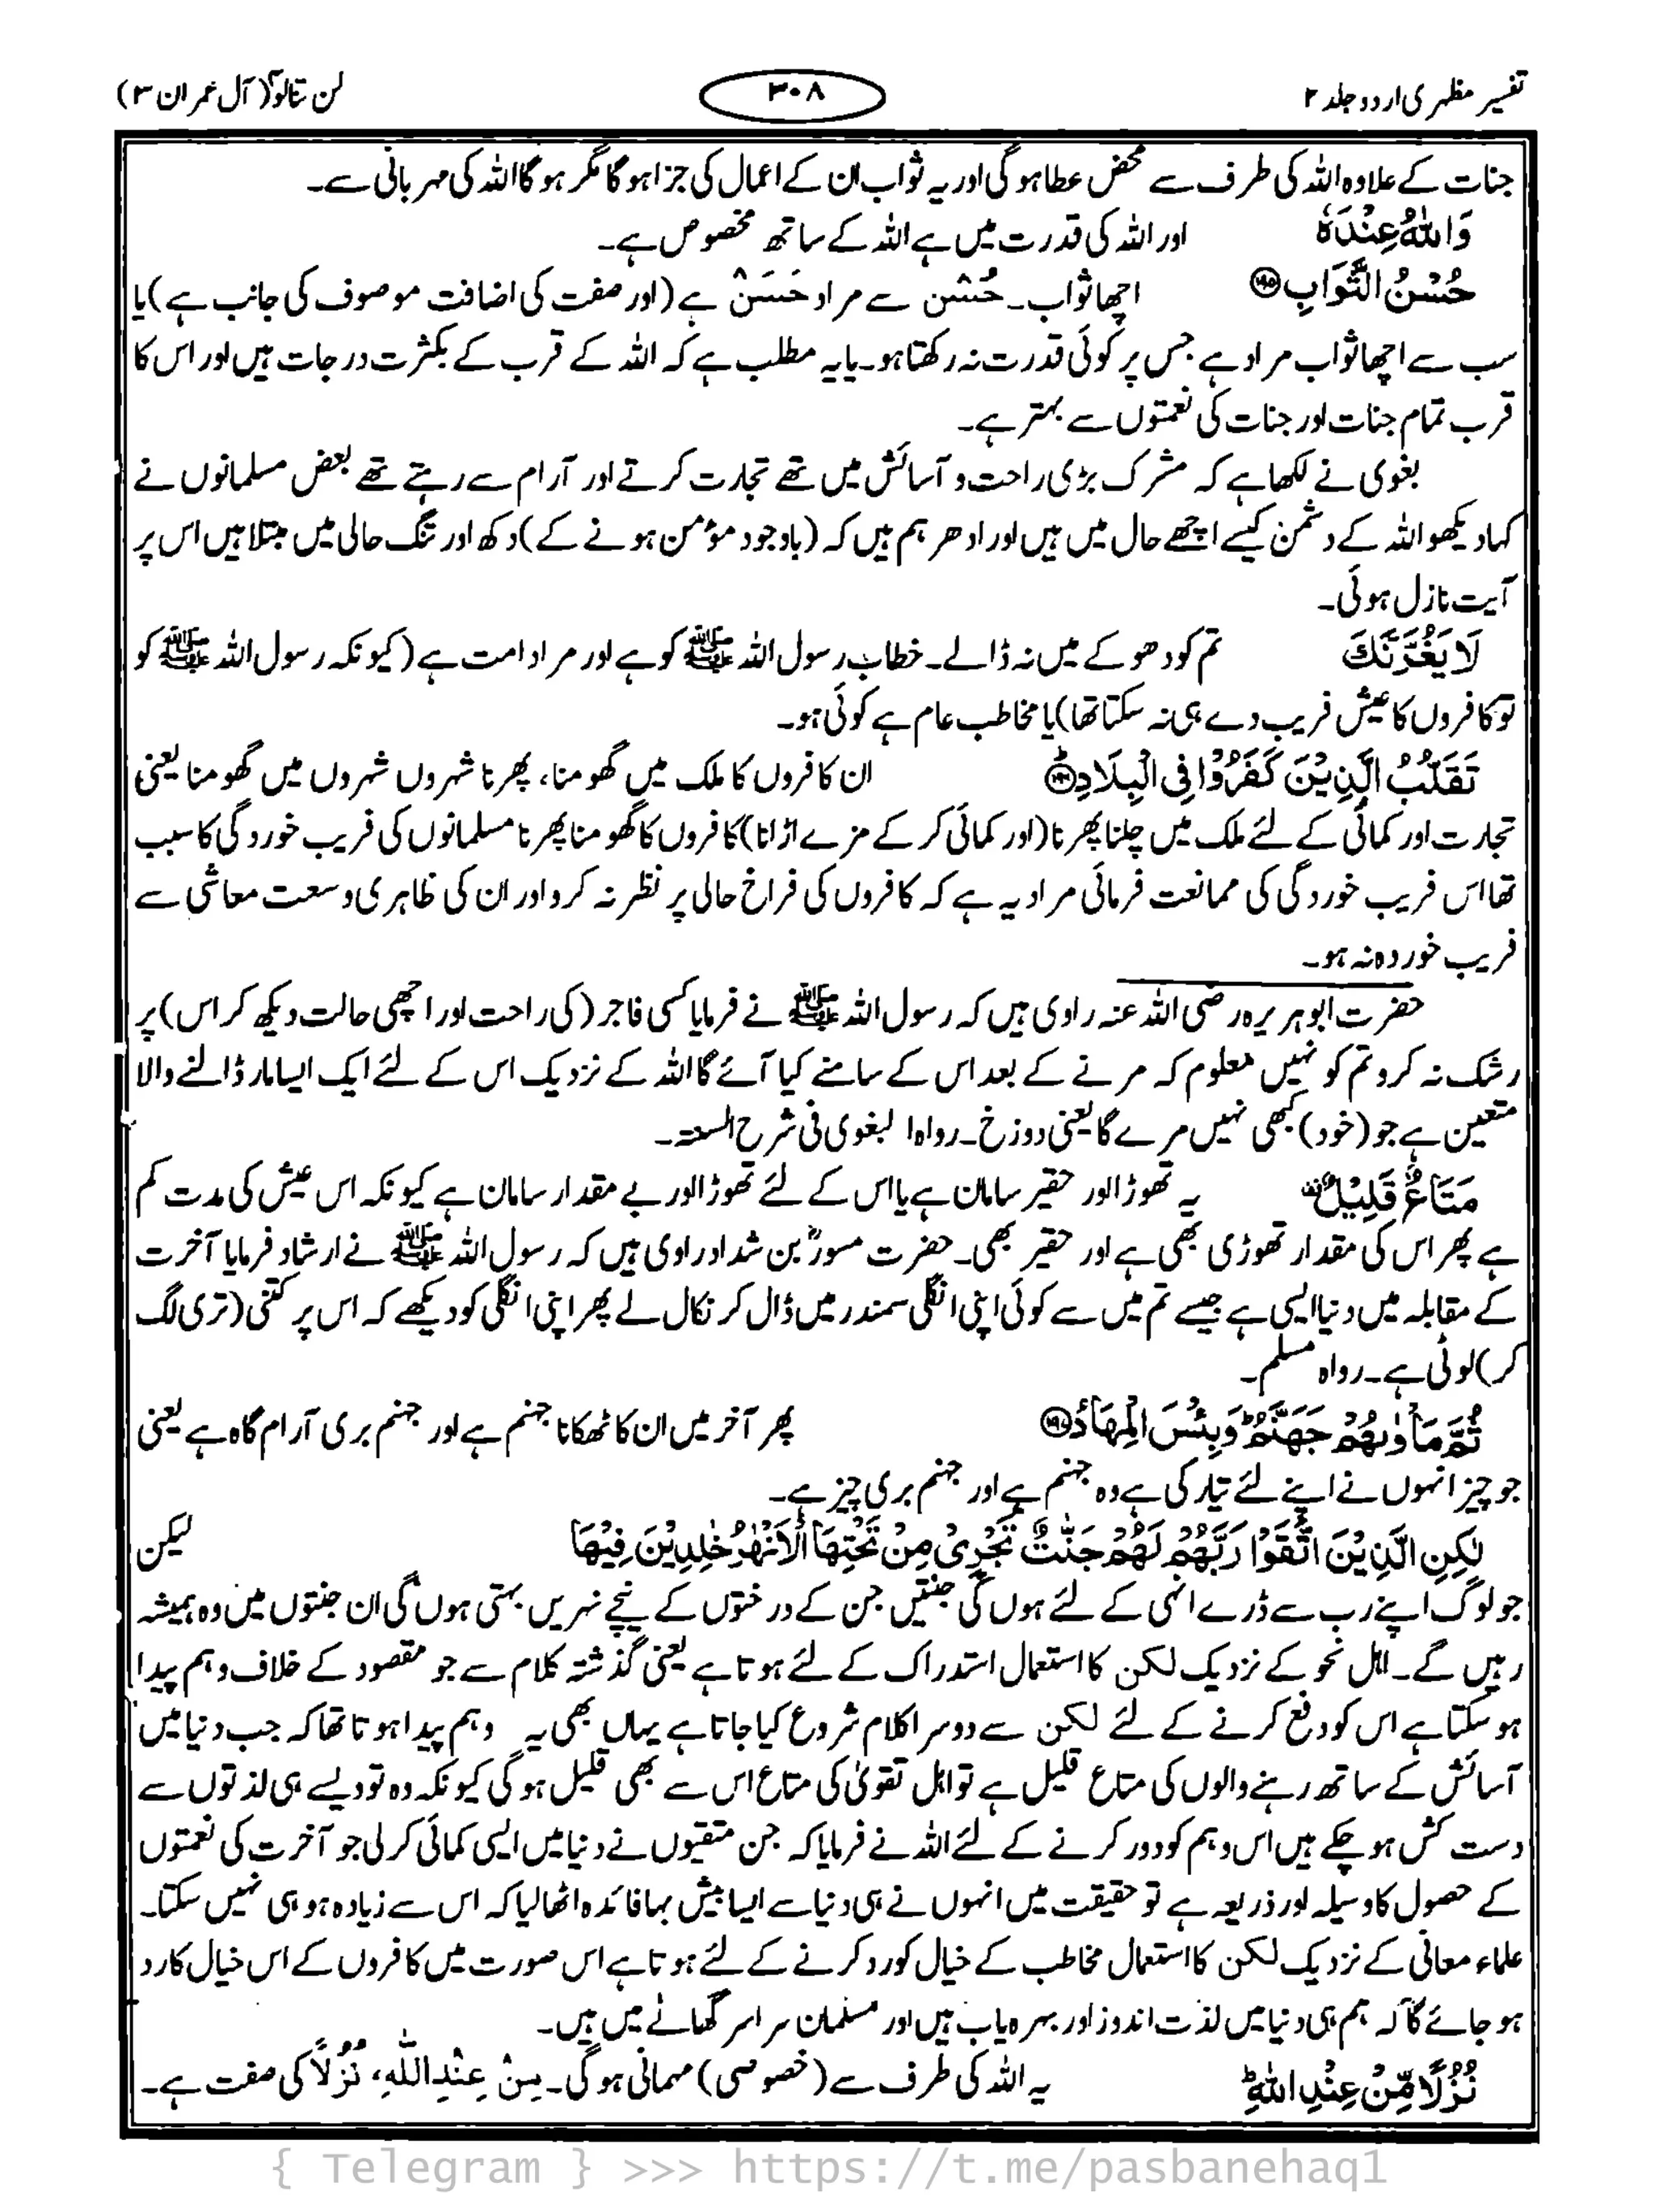 تفسیر مظہری اردو جلد ۲
۳۰۸
لن تنالوا (آل عمران ۳)
جنات کے علاوہ اللہ کی طرف سے محض عطا ہو گی اور یہ ثواب ان کے اعمال کی جزا ہو گا مگر ہو گا اللہ کی مہربانی سے۔
وَاللّٰهُ عِنْدَهٗ اور اللہ کی قدرت میں ہے اللہ کے ساتھ مخصوص ہے۔
حُسْنُ الثَّوَابِ ۝۱۹۵ اچھا ثواب۔ حُسْن سے مراد حَسَنٌ ہے (اور صفت کی اضافت موصوف کی جانب ہے) یا
سب سے اچھا ثواب مراد ہے جس پر کوئی قدرت نہ رکھتا ہو۔ یا یہ مطلب ہے کہ اللہ کے قرب کے بکثرت درجات ہیں اور اس کا
قرب تمام جنات اور جنات کی نعمتوں سے بہتر ہے۔
بغوی نے لکھا ہے کہ مشرک بڑی راحت و آسائش میں تھے تجارت کرتے اور آرام سے رہتے تھے بعض مسلمانوں نے
کہا دیکھو اللہ کے دشمن کیسے اچھے حال میں ہیں اور ادھر ہم ہیں کہ (باوجود مؤمن ہونے کے) دکھ اور تنگ حالی میں مبتلا ہیں اس پر
آیت نازل ہوئی۔
لَا يَغُرَّنَّكَ تم کو دھوکے میں نہ ڈالے۔ خطاب رسول اللہ ﷺ کو ہے اور مراد امت ہے (کیونکہ رسول اللہ ﷺ کو
تو کافروں کا عیش فریب دے ہی نہ سکتا تھا) یا مخاطب عام ہے کوئی ہو۔
تَقَلُّبُ الَّذِيْنَ كَفَرُوْا فِي الْبِلَادِ ۝۱۹۶ ان کافروں کا ملک میں گھومنا، پھرنا شہروں شہروں میں گھومنا یعنی
تجارت اور کمائی کے لئے ملک میں چلنا پھرنا (اور کمائی کر کے مزے اڑانا) کافروں کا گھومنا پھرنا مسلمانوں کی فریب خوردگی کا سبب
تھا اس فریب خوردگی کی ممانعت فرمائی مراد یہ ہے کہ کافروں کی فراخ حالی پر نظر نہ کرو اور ان کی ظاہری وسعت معاشی سے
فریب خوردہ نہ ہو۔
حضرت ابوہریرہ رضی اللہ عنہ راوی ہیں کہ رسول اللہ ﷺ نے فرمایا کسی فاجر (کی راحت اور اچھی حالت دیکھ کر اس) پر
رشک نہ کرو تم کو نہیں معلوم کہ مرنے کے بعد اس کے سامنے کیا آئے گا اللہ کے نزدیک اس کے لئے ایک ایسا مار ڈالنے والا
متعین ہے جو (خود) کبھی نہیں مرے گا یعنی دوزخ۔ رواہ البغوی فی شرح السنتہ۔
مَتَاعٌ قَلِيْلٌ یہ تھوڑا اور حقیر سامان ہے یا اس کے لئے تھوڑا اور بے مقدار سامان ہے کیونکہ اس عیش کی مدت کم
ہے پھر اس کی مقدار تھوڑی بھی ہے اور حقیر بھی۔ حضرت مسورؓ بن شداد راوی ہیں کہ رسول اللہ ﷺ نے ارشاد فرمایا آخرت
کے مقابلہ میں دنیا ایسی ہے جیسے تم میں سے کوئی اپنی انگلی سمندر میں ڈال کر نکال لے پھر اپنی انگلی کو دیکھے کہ اس پر کتنی (تری لگ
کر) لوٹی ہے۔ رواہ مسلم۔
ثُمَّ مَاْوٰىهُمْ جَهَنَّمُ ؕ وَبِئْسَ الْمِهَادُ ۝۱۹۷ پھر آخر میں ان کا ٹھکانا جہنم ہے اور جہنم بری آرام گاہ ہے یعنی
جو چیز انہوں نے اپنے لئے تیار کی ہے وہ جہنم ہے اور جہنم بری چیز ہے۔
لٰكِنِ الَّذِيْنَ اتَّقَوْا رَبَّهُمْ لَهُمْ جَنّٰتٌ تَجْرِيْ مِنْ تَحْتِهَا الْاَنْهٰرُ خٰلِدِيْنَ فِيْهَا لیکن
جو لوگ اپنے رب سے ڈرے انہی کے لئے ہوں گی جنتیں جن کے درختوں کے نیچے نہریں بہتی ہوں گی ان جنتوں میں وہ ہمیشہ
رہیں گے۔ اہل نحو کے نزدیک لکن کا استعمال استدراک کے لئے ہوتا ہے یعنی گذشتہ کلام سے جو مقصود کے خلاف وہم پیدا
ہو سکتا ہے اس کو دفع کرنے کے لئے لکن سے دوسرا کلام شروع کیا جاتا ہے یہاں بھی یہ وہم پیدا ہوتا تھا کہ جب دنیا میں
آسائش کے ساتھ رہنے والوں کی متاع قلیل ہے تو اہل تقویٰ کی متاع اس سے بھی قلیل ہو گی کیونکہ وہ تو ویسے ہی لذتوں سے
دست کش ہو چکے ہیں اس وہم کو دور کرنے کے لئے اللہ نے فرمایا کہ جن متقیوں نے دنیا میں ایسی کمائی کر لی جو آخرت کی نعمتوں
کے حصول کا وسیلہ اور ذریعہ ہے تو حقیقت میں انہوں نے ہی دنیا سے ایسا بیش بہا فائدہ اٹھا لیا کہ اس سے زیادہ ہو ہی نہیں سکتا۔
علماء معانی کے نزدیک لکن کا استعمال مخاطب کے خیال کو رد کرنے کے لئے ہوتا ہے اس صورت میں کافروں کے اس خیال کا رد
ہو جائے گا کہ ہم ہی دنیا میں لذت اندوز اور بہرہ یاب ہیں اور مسلمان سراسر گھاٹے میں ہیں۔
نُزُلًا مِّنْ عِنْدِ اللّٰهِ ؕ یہ اللہ کی طرف سے (خصوصی) مہمانی ہو گی۔ مِنْ عِنْدِ اللّٰهِ، نُزُلًا کی صفت ہے۔
{ Telegram } >>> https://t.me/pasbanehaq1